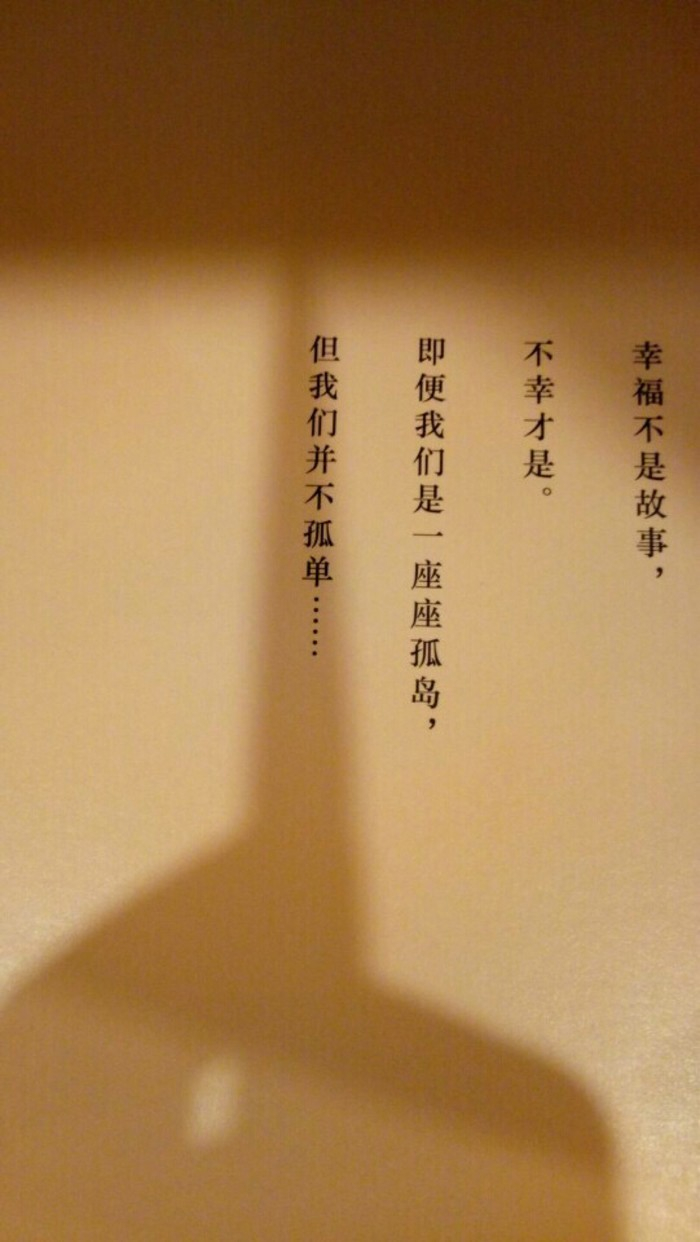 幸福不是故事，
不幸才是。
即便我们是一座座孤岛，
但我们并不孤单……